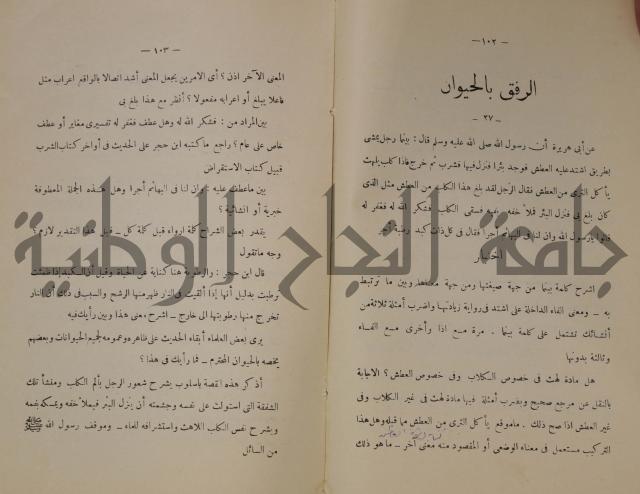 — ١٠٢ —
الرفق بالحيوان
— ٢٧ —
عن أبى هريرة أن رسول الله صلى الله عليه وسلم قال : بينما رجل يمشى
بطريق اشتد عليه العطش فوجد بئرا فنزل فيها فشرب ثم خرج فاذا كلب يلهث
يأكل الثرى من العطش فقال الرجل لقد بلغ هذا الكلب من العطش مثل الذى
كان بلغ بى فنزل البئر فملأ خفه فسقى الكلب فشكر الله له فغفر له
قالوا يارسول الله وان لنا فى البهائم أجرا فقال فى كل ذات كبد رطبة أجر
اشرح كلمة بينما من جهة صيغتها ومن جهة معناها وبين ما ترتبط
به ـ ومعنى الفاء الداخلة على اشتد فى رواية زيادتها واضرب أمثلة ثلاثة من
انشائك تشتمل على كلمة بينما . مرة مع اذا وأخرى مع الفاء
وثالثة بدونها
هل مادة لهث فى خصوص الكلاب وفى خصوص العطش ؟ الاجابة
بالنقل عن مرجع صحيح وبضرب أمثلة فيها مادة لهث فى غير الكلاب وفى
غير العطش اذا صح ذلك . ماموقع يأكل الثرى من العطش مما قبله وهل هذا
التركيب مستعمل فى معناه الوضعى أو المقصود منه معنى آخر ـ ما هو ذلك
— ١٠٣ —
المعنى الآخر اذن ؟ أى الامرين يجعل المعنى أشد اتصالا بالواقع اعراب مثل
فاعلا يبلغ أو اعرابه مفعولا ؟ أنظر مع هذا بلغ بى
بين المراد من : فشكر الله له وهل عطف فغفر له تفسيرى مغاير أو عطف
خاص على عام ؟ راجع ما كتبه ابن حجر على الحديث فى أواخر كتاب الشرب
قبيل كتاب الاستقراض
بين ماعطف عليه : وان لنا فى البهائم أجرا وهل هذه الجملة المعطوفة
خبرية أو انشائية ؟
يقدر بعض الشراح كلمة ارواء قبل كلمة كل ـ فهل هذا التقدير لازم ؟
وجه ماتقول
قال ابن حجر : والرطوبة هنا كناية عن الحياة وقيل أن الكبد اذا ظمئت
ترطبت بدليل أنها اذا ألقيت فى النار ظهر منها الرشح والسبب فى ذلك أن النار
تخرج منها رطوبتها الى خارج ـ اشرح معنى هذا وبين رأيك فيه
يرى بعض العلماء أبقاء الحديث على ظاهره وعمومه لجميع الحيوانات وبعضهم
يخصه بالحيوان المحترم ـ فما رأيك فى هذا ؟
أذكر هذه القصة باسلوب يشرح شعور الرجل بألم الكلب ومنشأ تلك
الشفقة التى استولت على نفسه وجشمته أن ينزل البئر فيملأ خفه ويمسكه بفمه
ويشرح نفس الكلب اللاهث واستشرافه للماء ـ وموقف رسول الله ﷺ
من السائل
جامعة النجاح الوطنية